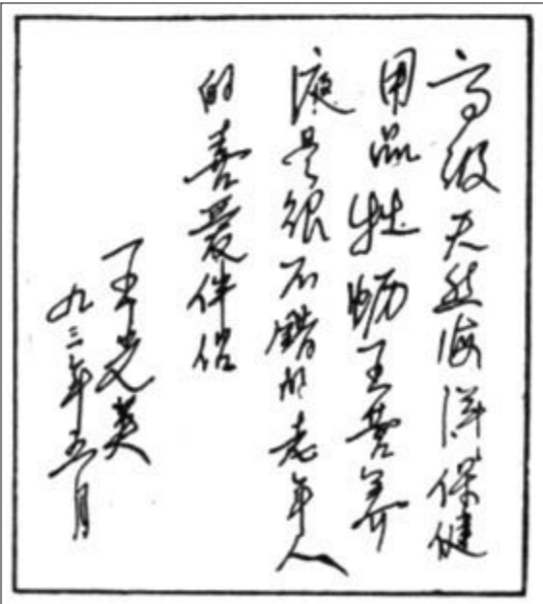 高级天然海洋保健
用品牡蛎王营养
液是很不错的老年人
的喜爱伴侣
王光英
九三年五月